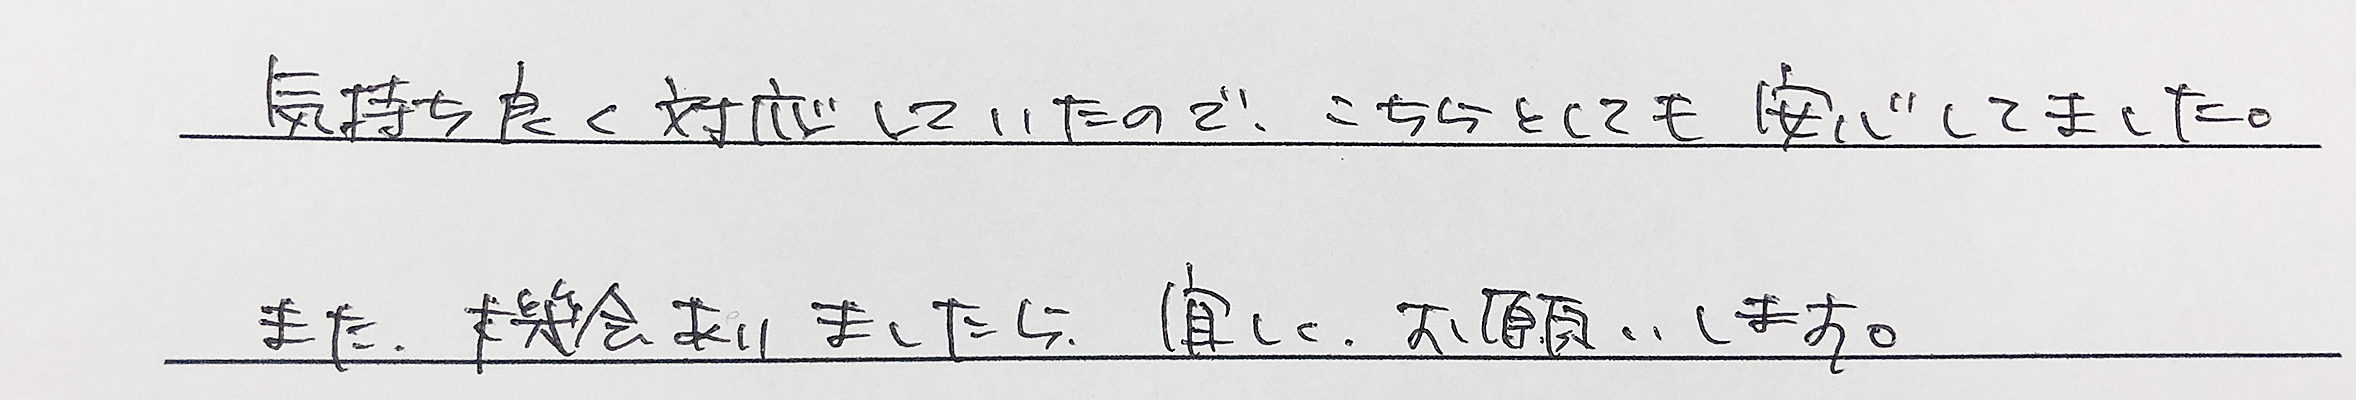 気持ち良く対応していたので、こちらとしても安心してました。
また、機会ありましたら、宜しく、お願いします。